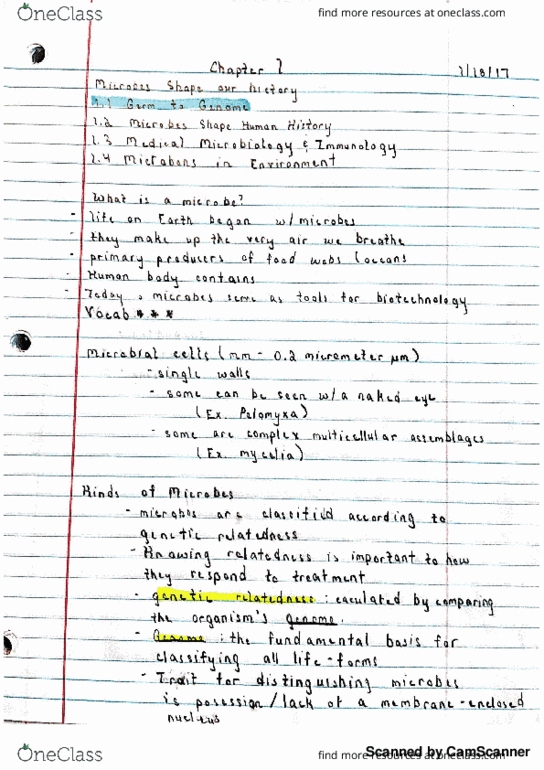 OneClass
find more resources at oneclass.com
Chapter 1
1/18/17
Microbes Shape our history
1.1 Germ to Genome
1.2 Microbes Shape Human History
1.3 Medical Microbiology & Immunology
1.4 Microbens in Environment
What is a microbe?
- life on Earth began w/ microbes
- they make up the very air we breathe
- primary producers of food webs (oceans
- Human body contains
- Today, microbes serve as tools for biotechnology
Vocab * * *
Microbial cells (mm - 0.2 micrometer μm)
- single walls
- some can be seen w/a naked eye
(Ex. Pelomyxa)
- some are complex multicellular assemblages
(Ex. mycelia)
Kinds of Microbes
- microbes are classified according to
genetic relatedness
- Knowing relatedness is important to how
they respond to treatment
- genetic relatedness : caculated by comparing
the organism's genome.
- Genome : the fundamental basis for
classifying all life-forms
- Trait for distinguishing microbes
is posession/lack of a membrane-enclosed
nucleus
OneClass
find more resources at oneclass.com
Scanned by CamScanner